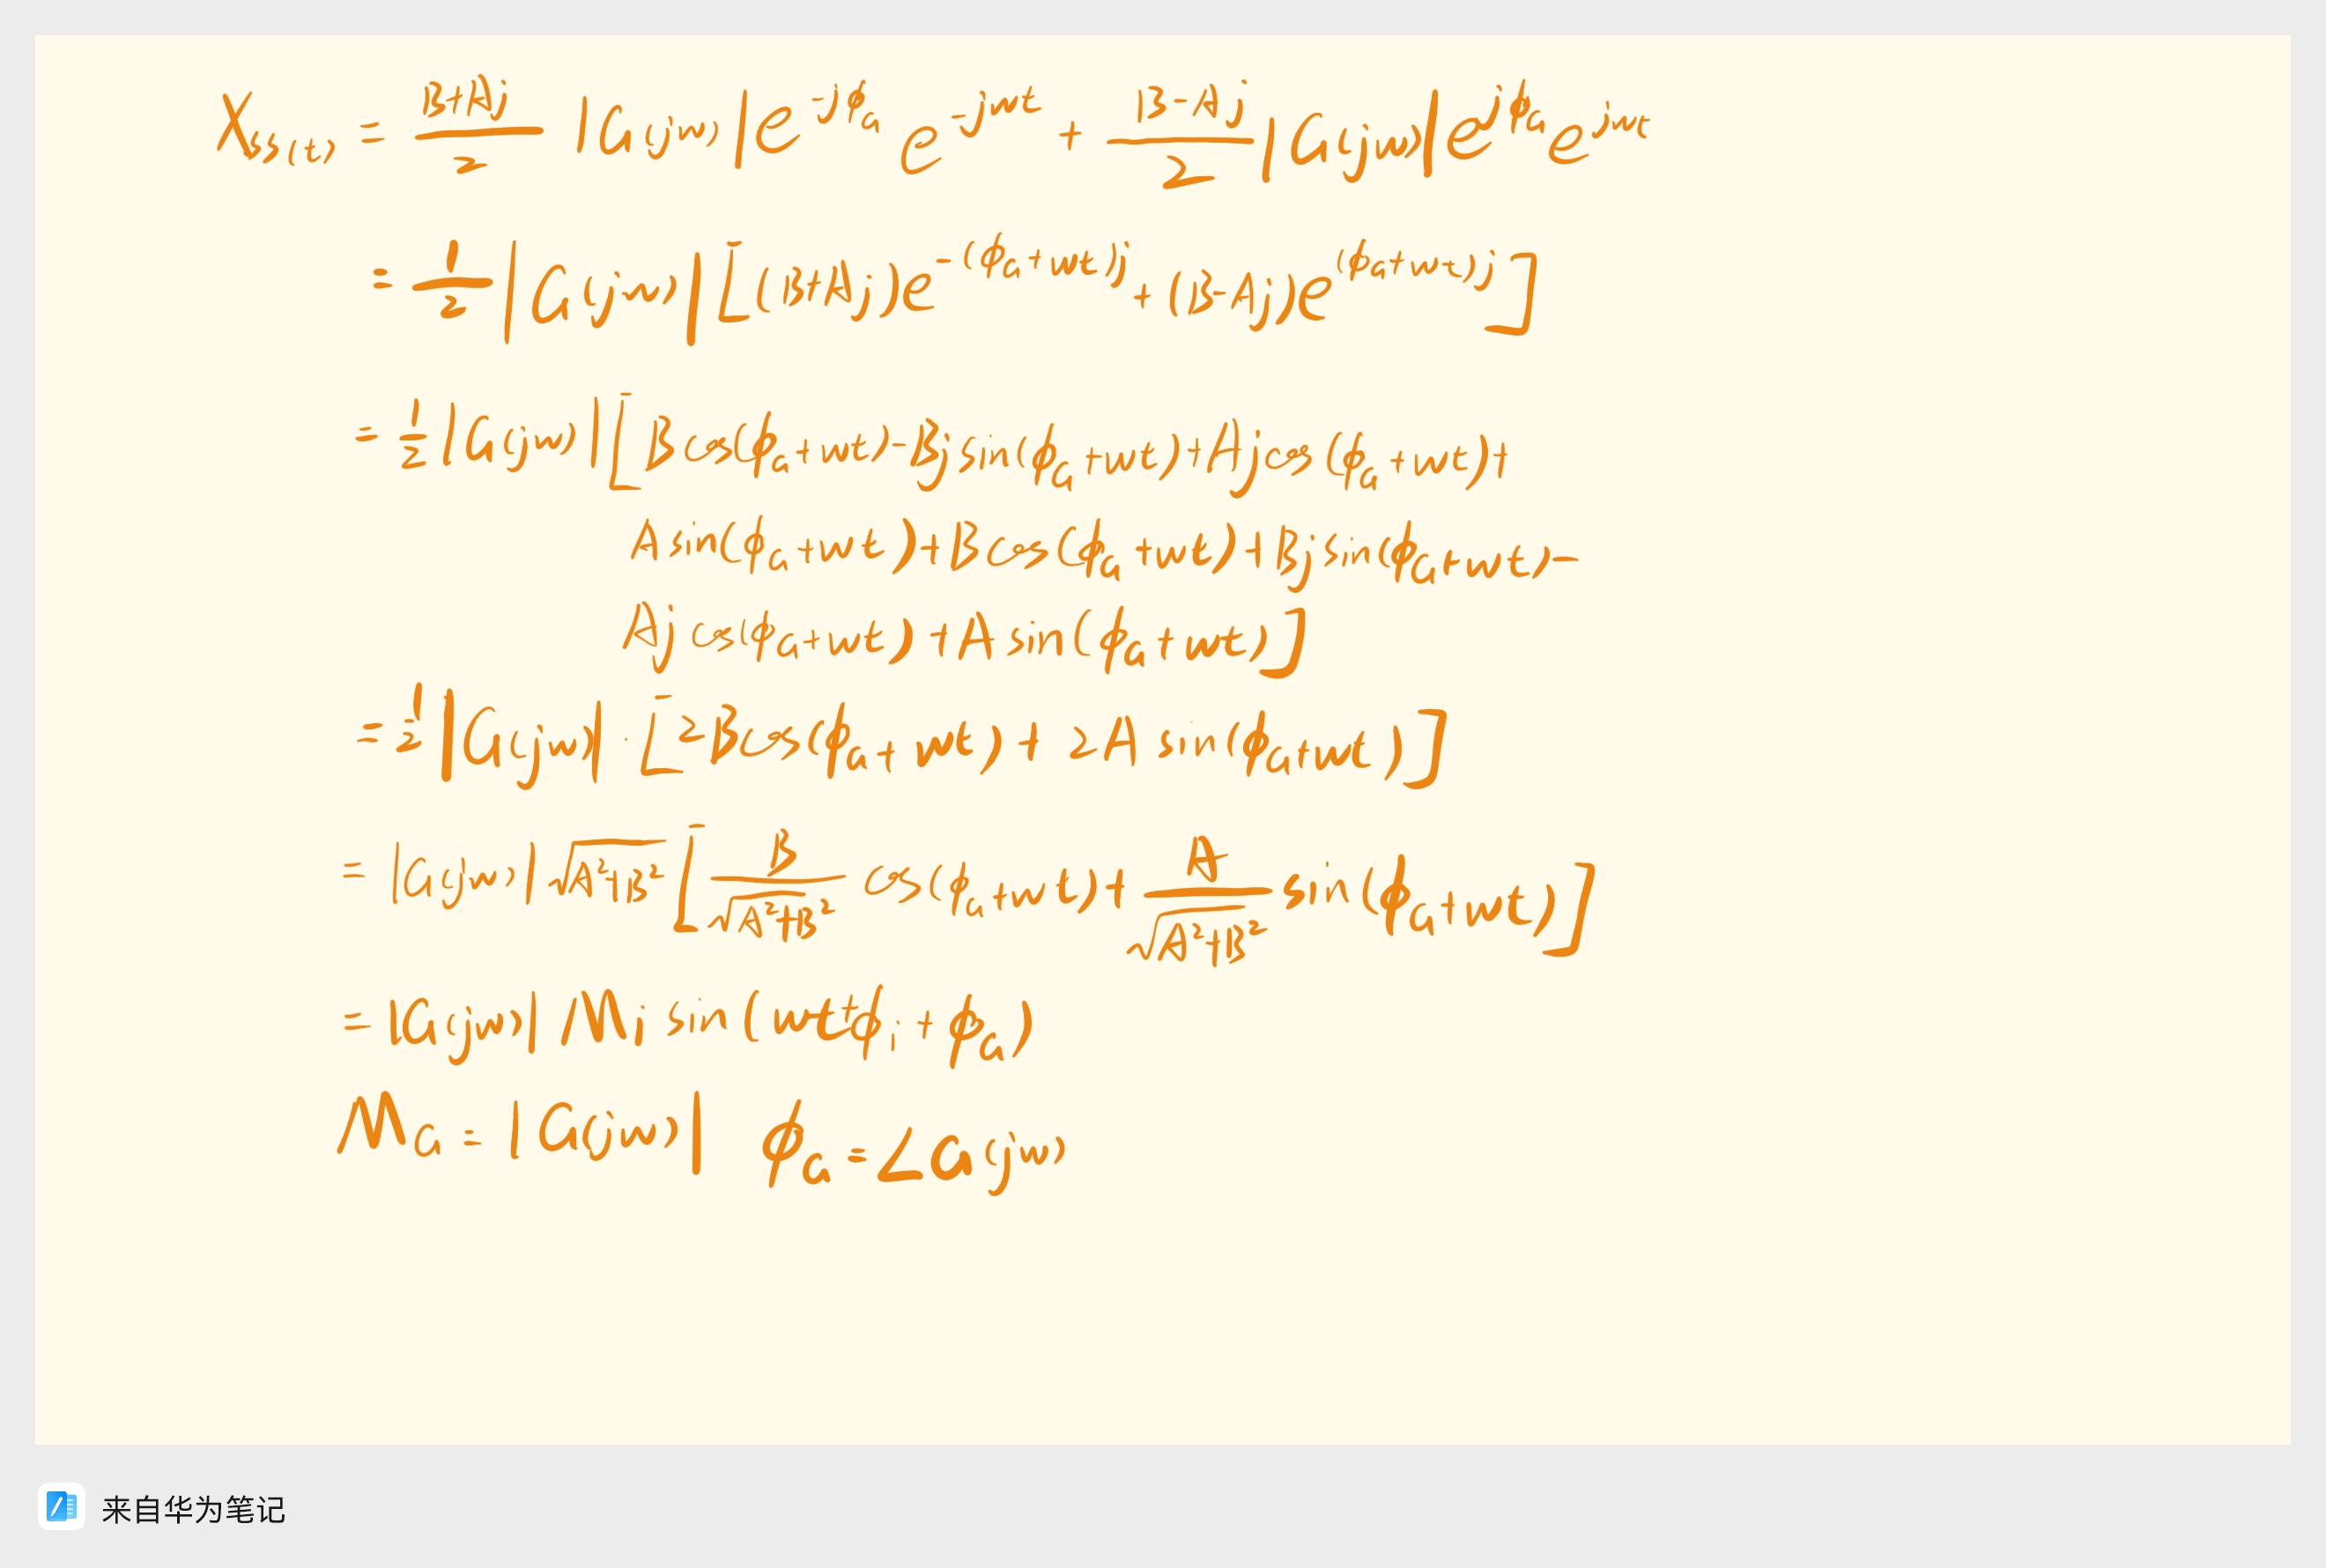 Xss(t) = (B+Aj)/2 |G(jw)| e^(-jϕ_G) e^(-jwt) + (B-Aj)/2 |G(jw)| e^(jϕ_G) e^(jwt)
= 1/2 |G(jw)| [(B+Aj)e^(-(ϕ_G+wt)j) + (B-Aj)e^((ϕ_G+wt)j)]
= 1/2 |G(jw)| [Bcos(ϕ_G+wt)-Bjsin(ϕ_G+wt)+Ajcos(ϕ_G+wt)+
Asin(ϕ_G+wt)+Bcos(ϕ_G+wt)+Bjsin(ϕ_G+wt)-
Ajcos(ϕ_G+wt)+Asin(ϕ_G+wt)]
= 1/2 |G(jw)|·[2Bcos(ϕ_G+wt)+2Asin(ϕ_G+wt)]
= |G(jw)| √(A²+B²) [B/√(A²+B²) cos(ϕ_G+wt)+ A/√(A²+B²) sin(ϕ_G+wt)]
= |G(jw)| Mi sin(wt+ϕi+ϕ_G)
M_G = |G(jw)| ϕ_G = ∠G(jw)
来自华为笔记